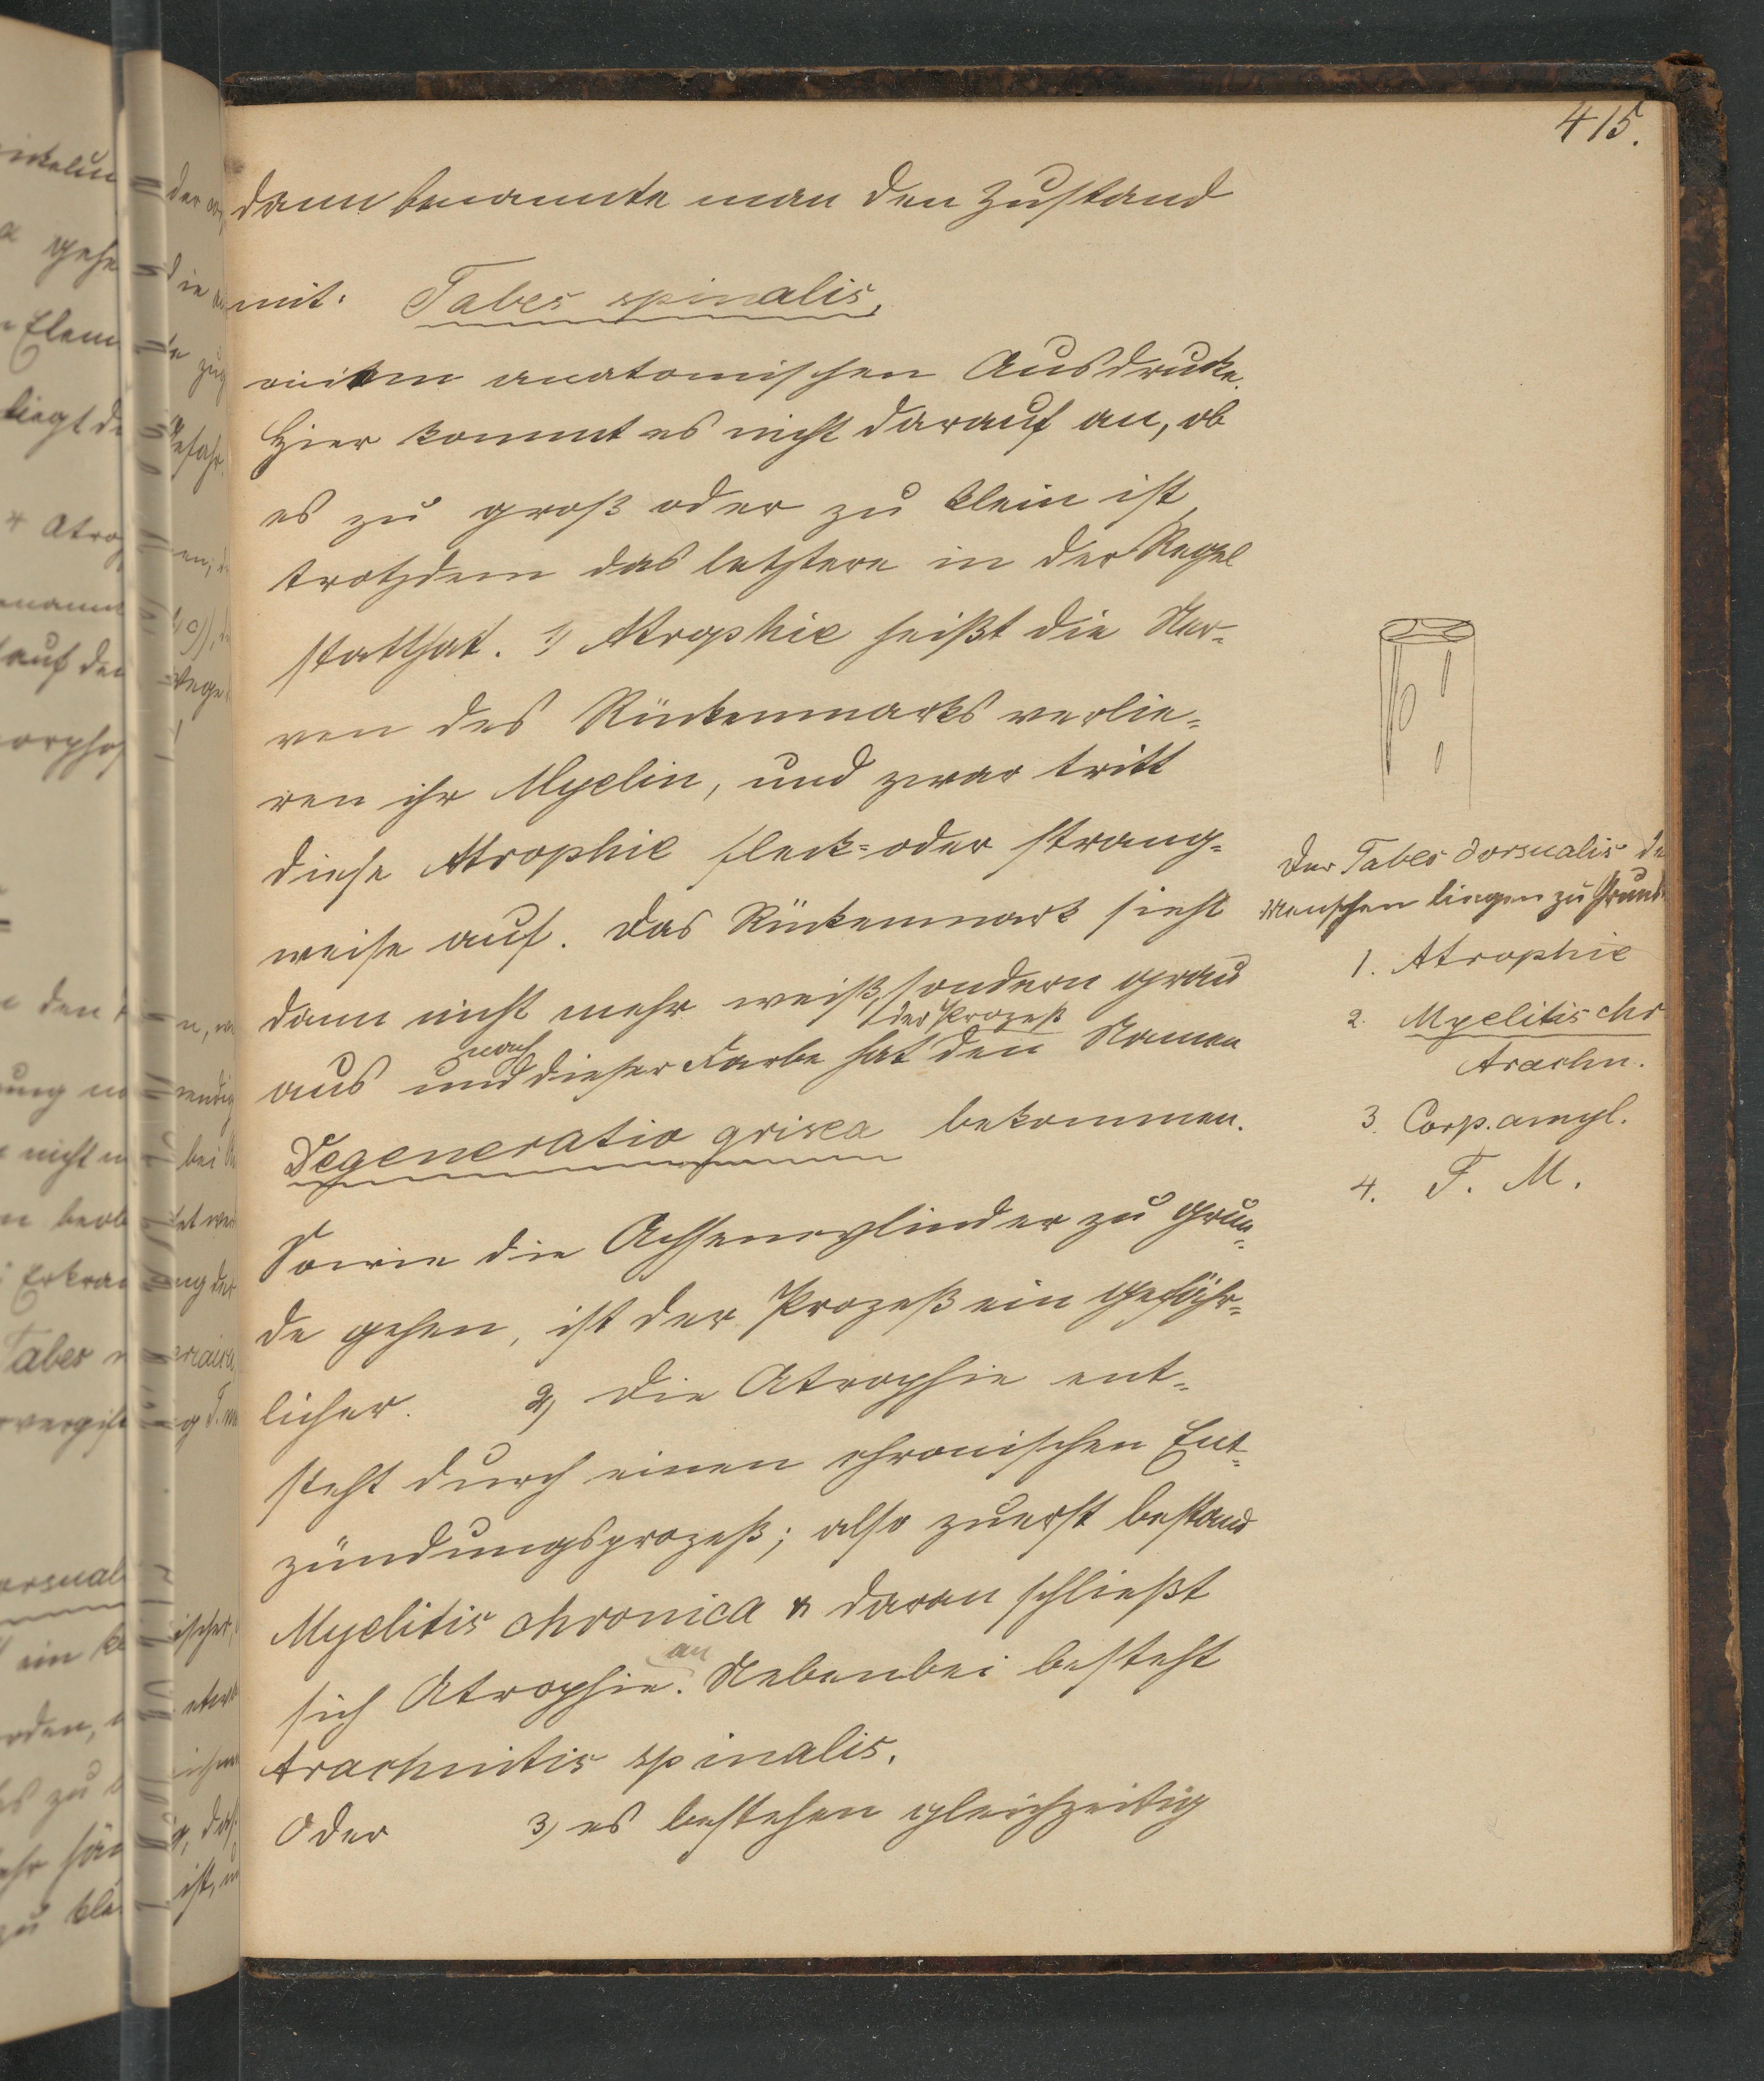 415.
dann benannte man den Zustand
mit: Tabes spinalis,
einem anatomischen Ausdrucke.
Hier kommt es nicht darauf an, ob
es zu groß oder zu klein ist,
trotzdem das letztere in der Regel
statthat. 1) Atrophie heißt die Ner-
ven des Rückenmarks verlie-
ren ihr Myelin, und zwar tritt
diese Atrophie fleck- oder strang-
weise auf. Das Rückenmark sieht
dann nicht mehr weiß, sondern grau
aus und nach dieser Farbe hat der Prozeß den Namen
Degeneratio grisea bekommen.
Sowie die Achsencylinder zu Grun-
de gehen, ist der Prozeß ein gefähr-
licher. 2) Die Atrophie ent-
steht durch einen chronischen Ent-
zündungsprozeß; also zuerst bestand
Myelitis chronica & daran schließt
sich Atrophie an. Nebenbei besteht
Arachnitis spinalis.
Oder 3) es bestehen gleichzeitig
Der Tabes dorsualis de
Menschen liegen zu Grund
1. Atrophie
2. Myelitis chr
Arachn.
3. Corp. amyl.
4. T. M.